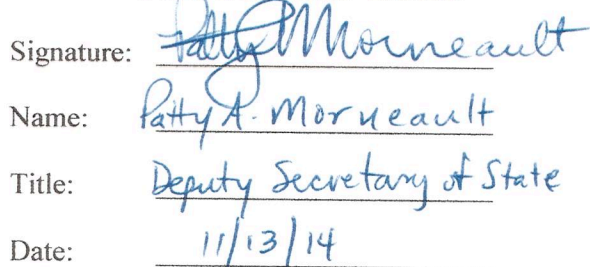 Signature: Patty A Morneault
Name: Patty A. Morneault
Title: Deputy Secretary of State
Date: 11/13/14